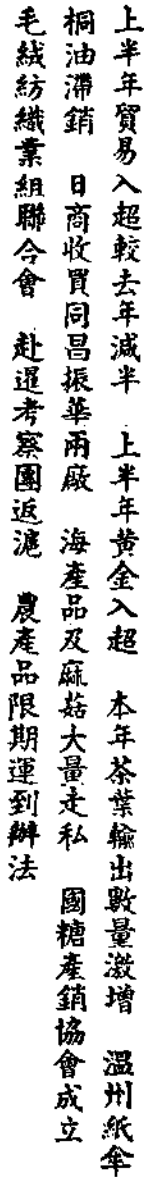 上半年貿易入超較去年減半　上半年黃金入超　本年茶葉輸出數量激增　溫州紙傘
桐油滯銷　日商收買同昌振華兩廠　海產品及麻菇大量走私　國糖產銷協會成立
毛絨紡織業組聯合會　赴暹考察團返滬　農產品限期運到辦法